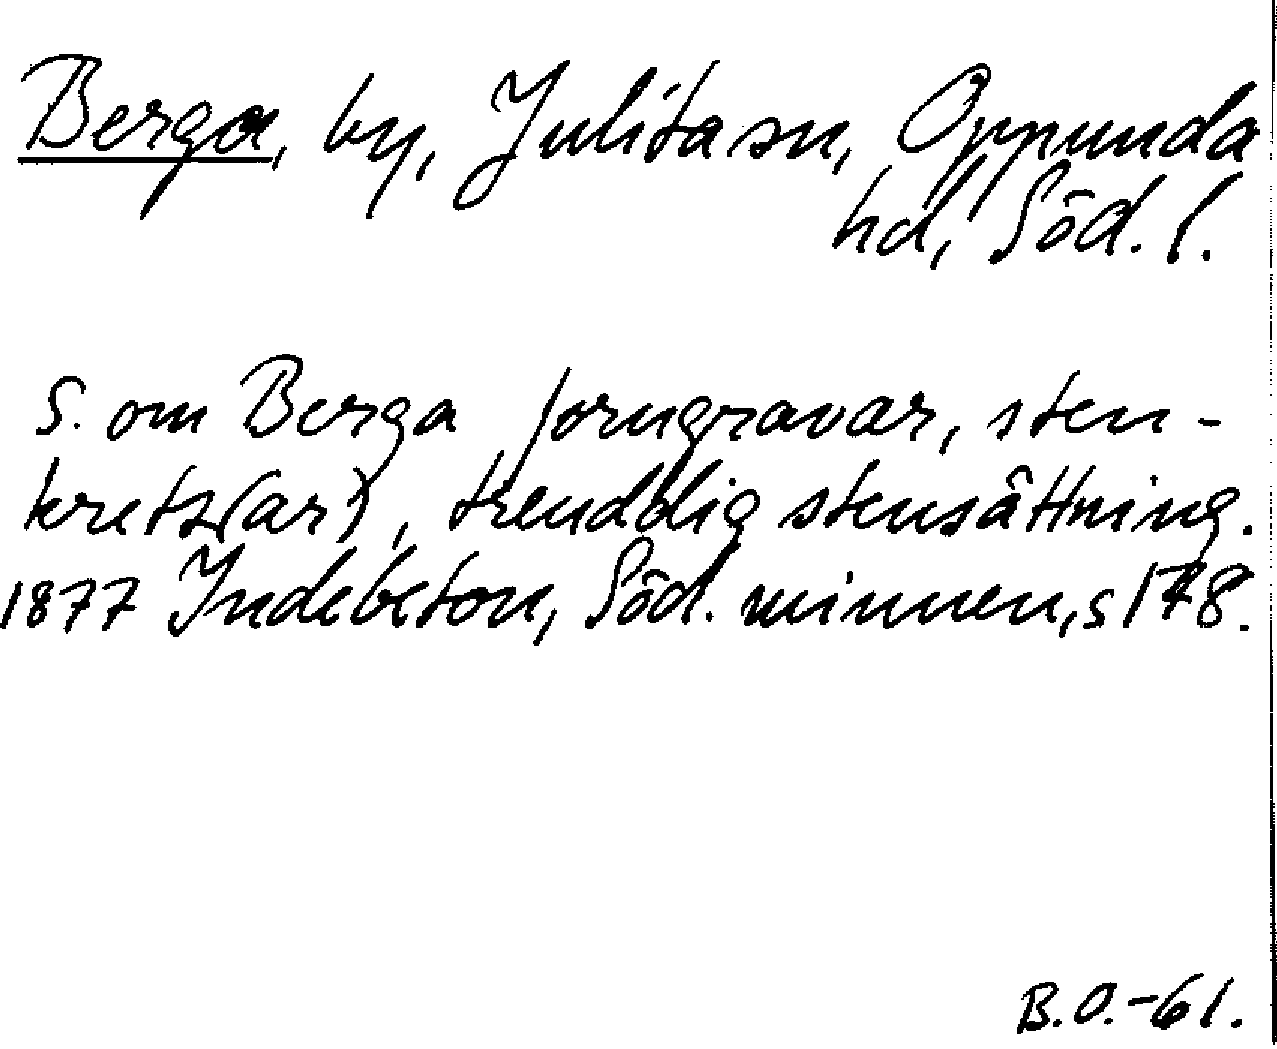 Berga, by, Julita sn, Oppunda
hd, Söd. l.
S. om Berga forngravar, sten-
krets(ar), treuddig stensättning.
1877 Indebetou, Söd. minnen, s 178.
B.O.-61.